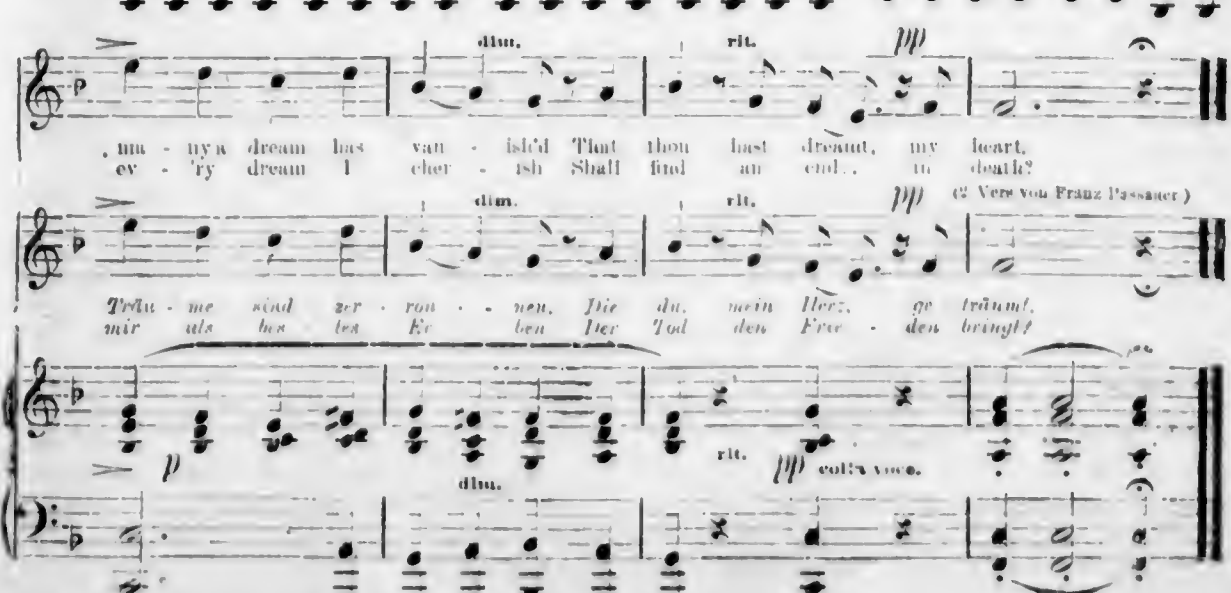 dim. rit. pp
ma - ny a dream has van - ish'd That thou hast dreamt, my heart,
ev - 'ry dream I cher - ish Shall find an end.. in death?
dim. rit. pp (2 Vers von Franz Passauer)
Träu - me sind zer - ron - - nen, Die du, mein Herz, ge träumt,
mir als bes tes Er ben Der Tod den Frie - den bringt?
rit. pp colla voce.
p dim.